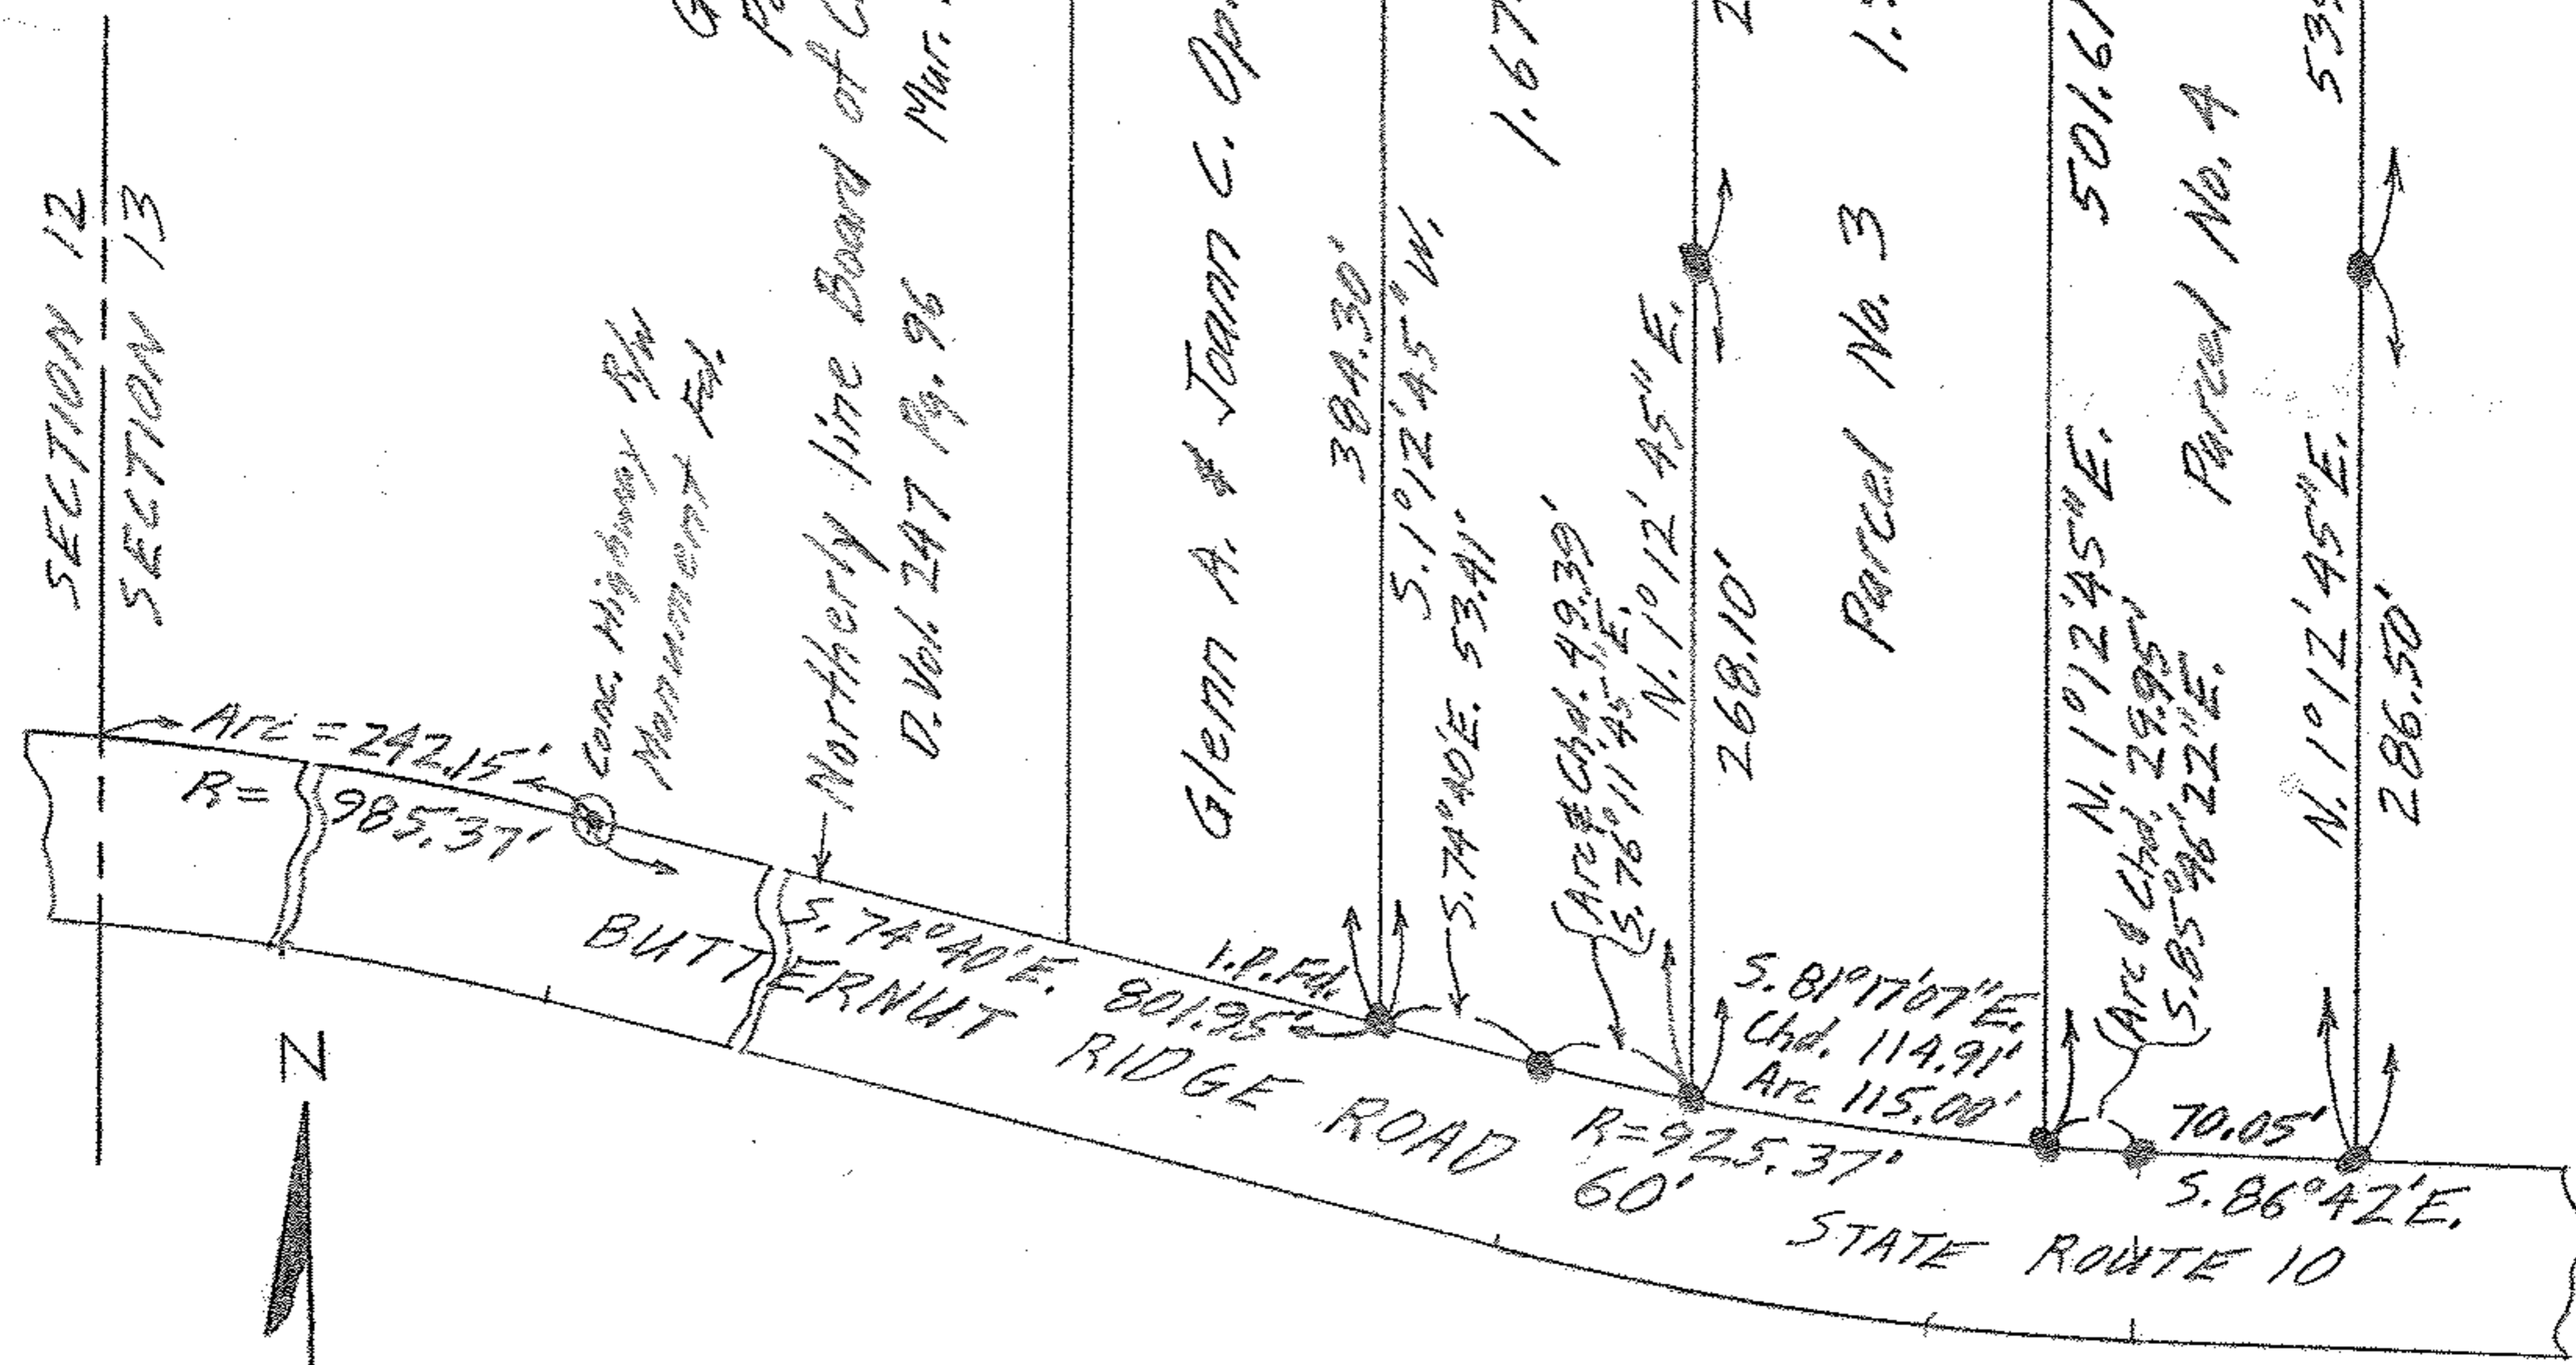 SECTION 12
SECTION 13
Arc = 242.15'
R = 985.37'
Conc. Highway R/W
Monument Fd.
Northerly line Board of
D. Vol. 247 Pg. 96
Mur.
Glenn A. & Joann C.
384.30'
S. 1° 12' 45" W.
S. 74° 40' E. 53.41'
1.67
Arc & Chd. 49.39'
S. 76° 11' 45" E.
N. 1° 12' 45" E.
268.10'
Parcel No. 3
501.61
N. 1° 12' 45" E.
Arc & Chd. 29.95'
S. 85° 46' 22" E.
Parcel No. 4
N. 1° 12' 45" E.
286.50'
S. 74° 40' E. 801.95'
I.P. Fd.
S. 81° 17' 07" E.
Chd. 114.91'
Arc 115.00'
R = 925.37'
70.05'
S. 86° 42' E.
BUTTERNUT RIDGE ROAD 60'
STATE ROUTE 10
N